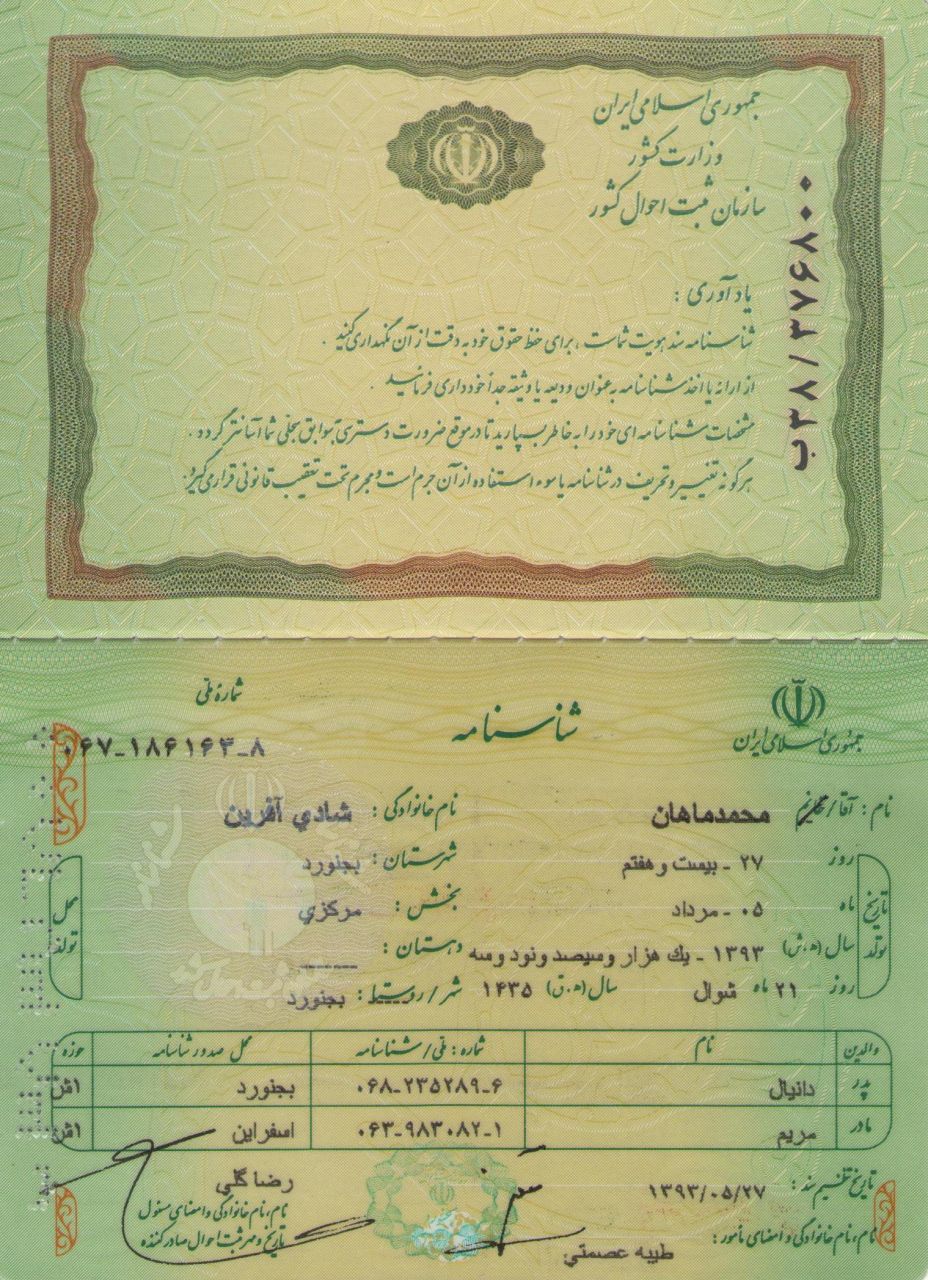 جمهوری اسلامی ایران
وزارت کشور
سازمان ثبت احوال کشور
ب۲۸/۳۷۶۸۰۰
یادآوری :
شناسنامه سند هویت شماست ، برای حفظ حقوق خود به دقت از آن نگهداری کنید .
از ارائه یا اخذ شناسنامه به عنوان ودیعه یا وثیقه جداً خودداری فرمائید .
مشخصات شناسنامه ای خود را به خاطر بسپارید تا در موقع ضرورت دسترسی بسوابق سجلی شما آسانتر گردد .
هرگونه تغییر و تحریف در شناسنامه یا سوء استفاده از آن جرم است و مجرم تحت تعقیب قانونی قرار می گیرد .
جمهوری اسلامی ایران
شناسنامه
شمارهٔ ملی
۰۶۷-۱۸۶۱۶۳-۸
نام : آقا/خانم محمدماهان نام خانوادگی : شادي آفرين
تاریخ تولد
روز ۲۷ - بیست و هفتم
ماه ۰۵ - مرداد
سال (ه.ش) ۱۳۹۳ - يك هزار و سيصد و نود و سه
روز ۲۱ ماه شوال سال (ه.ق) ۱۴۳۵
محل تولد
شهرستان : بجنورد
بخش : مرکزي
دهستان : ------
شهر/روستا : بجنورد
والدین نام شماره : ملی/شناسنامه محل صدور شناسنامه حوزه
پدر دانیال ۰۶۸-۲۳۵۲۸۹-۶ بجنورد اش
مادر مریم ۰۶۳-۹۸۳۰۸۲-۱ اسفراین اش
تاریخ تنظیم سند : ۱۳۹۳/۰۵/۲۷
نام، نام خانوادگی و امضای مأمور :
طیبه عصمتي
رضا گلي
نام، نام خانوادگی و امضای مسئول
تاریخ و مهر ثبت احوال صادر کننده